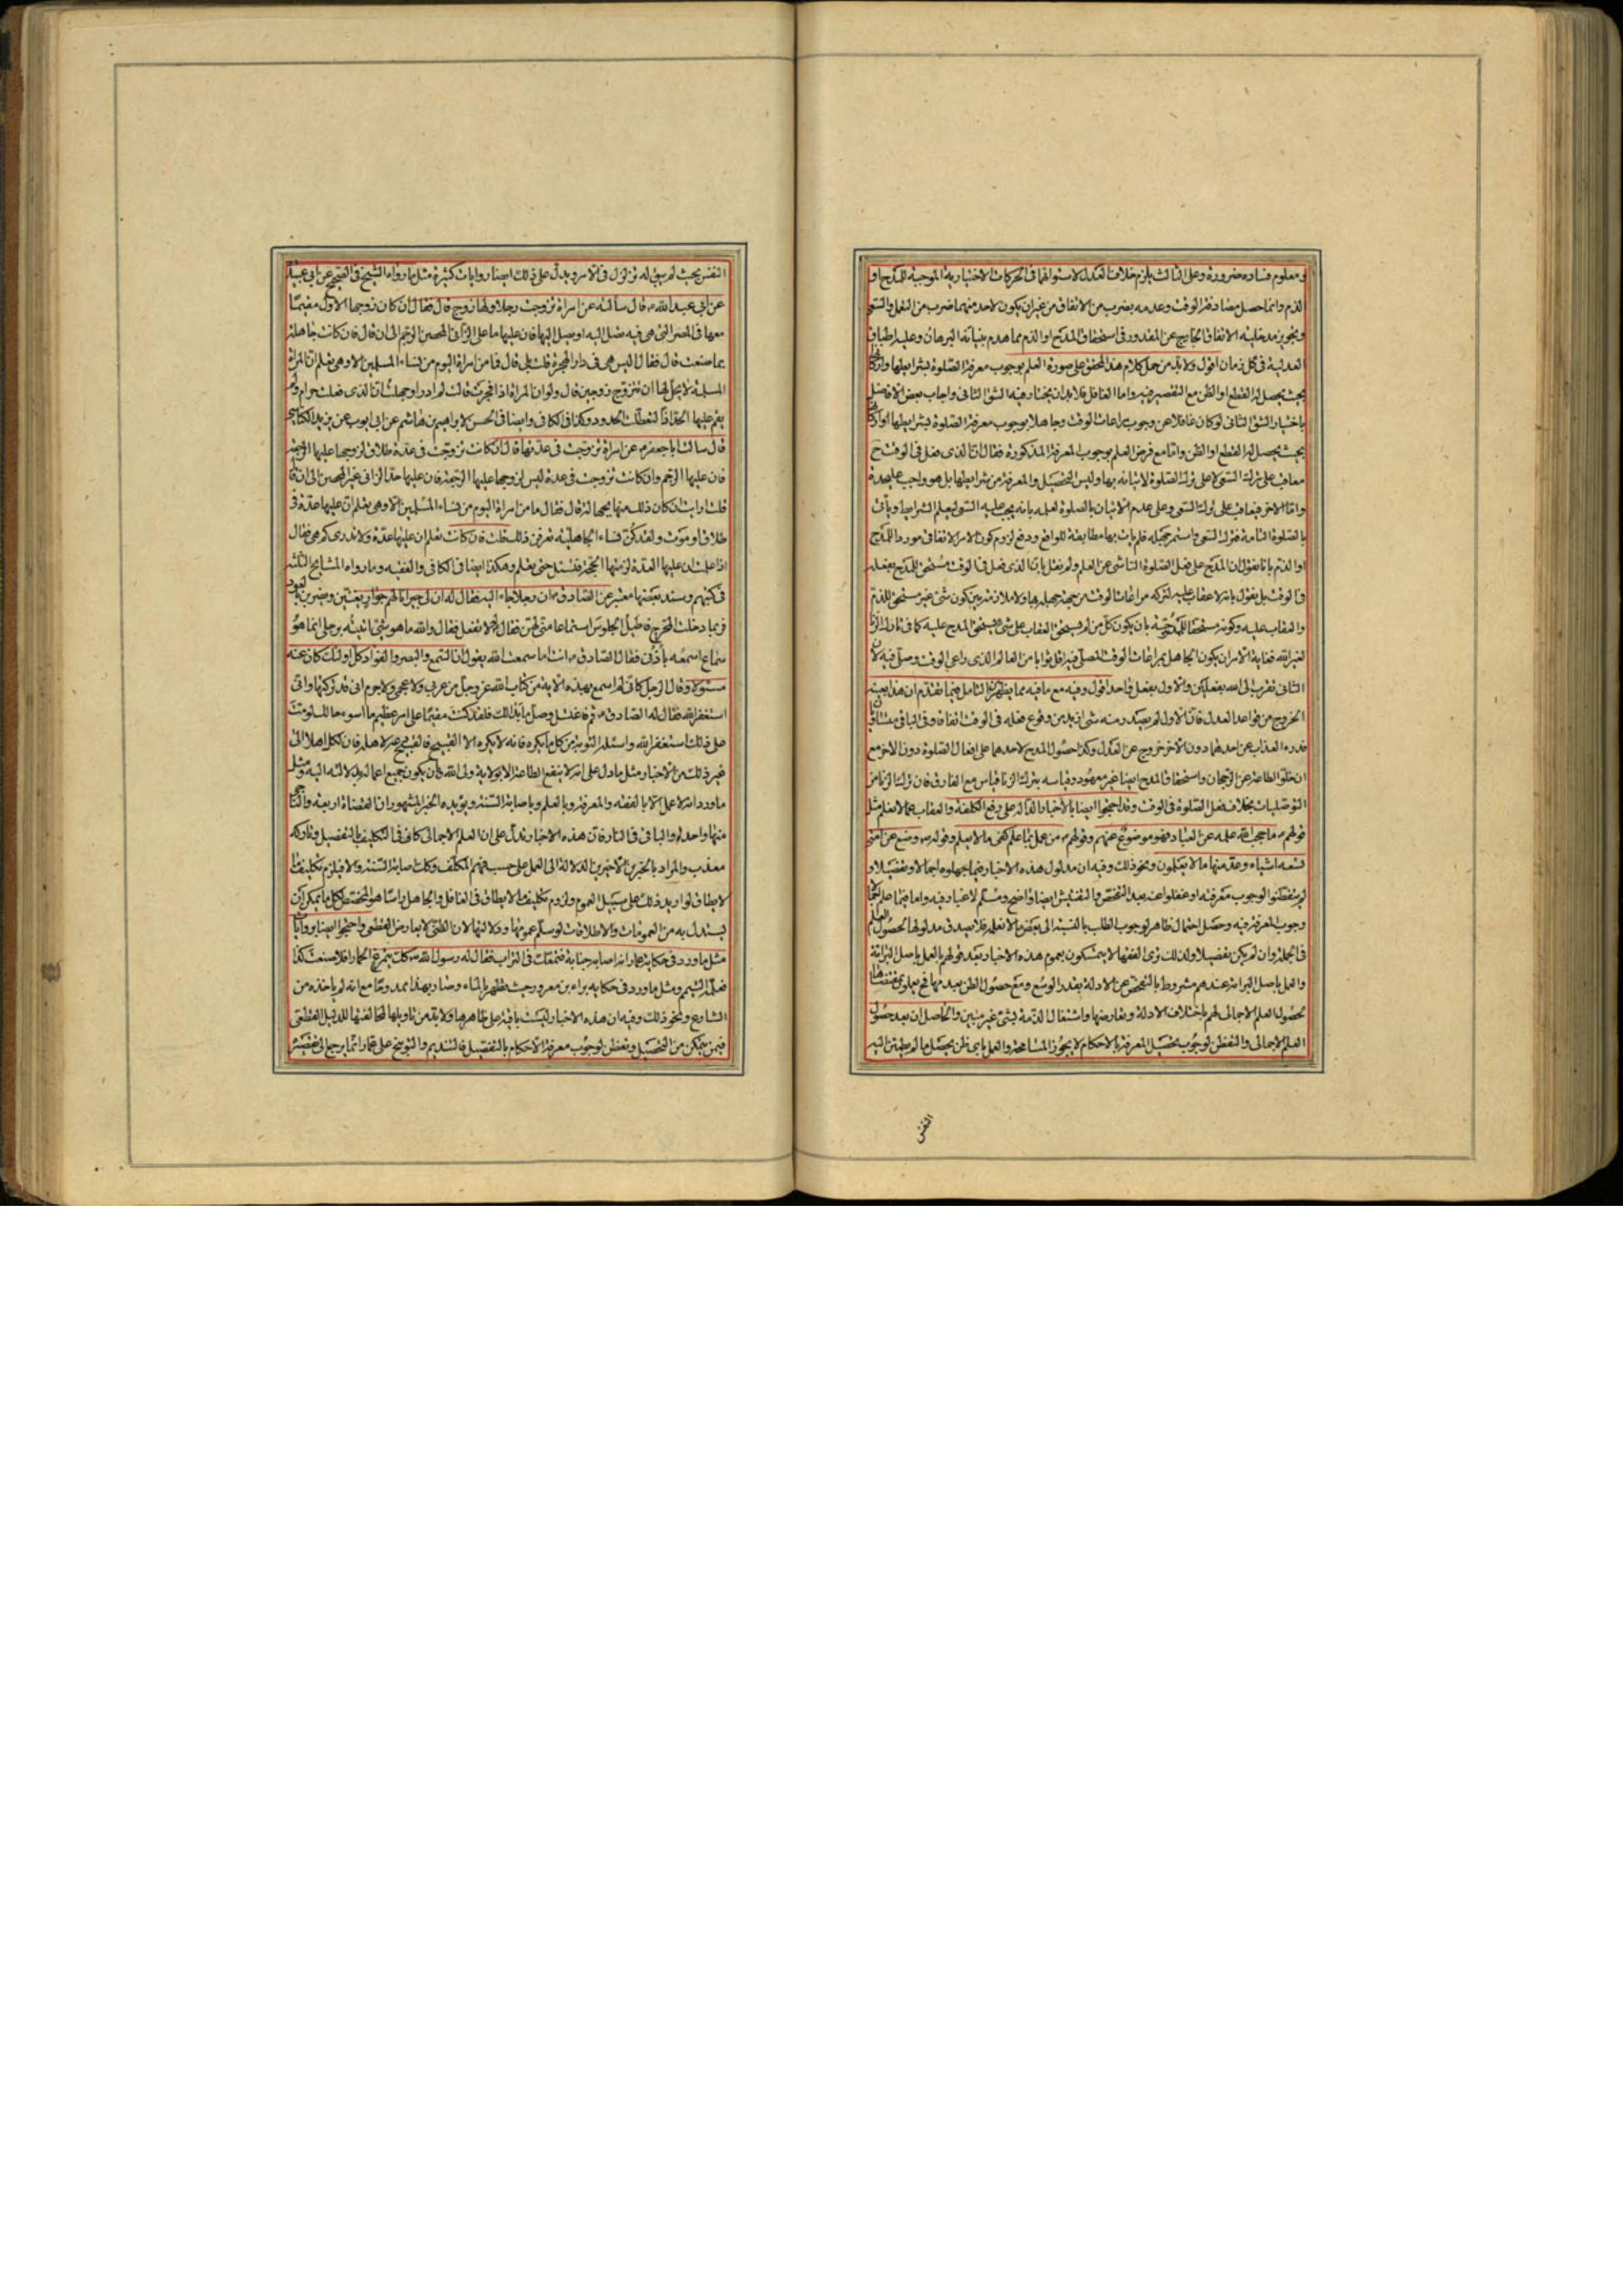 معلوم فساده ضرورة وعلى الثالث يلزم خلاف العدل لاستوائهما فى الحركات الاختيارية الموجبة للمدح او
الذم وانما حصل مصادفة الوقت وعدمه بضرب من الاتفاق من غير ان يكون لاحد منهما ضرب من التعمل والسعى
وتجويز مدخلية الاتفاق الخارج عن المقدور فى استحقاق المدح او الذم مما هدم بنيانه البرهان وعليه اطباق
العدلية فى كل زمان اقول ولابد من حمل كلام هذا المحقق على صورة العلم بوجوب معرفة الصلوة بشرايطها
بحيث يحصل له القطع او الظن مع التقصير فيه واما الغافل فلابد ان يختار فيه الشق الثانى واجاب بعض الافاضل
باختيار الشق الثانى لو كان غافلا عن وجوب مراعات الوقت وجاهلا بوجوب معرفة الصلوة بشرايطها
بحيث يحصل له القطع او الظن واما مع فرض العلم بوجوب المعرفة المذكورة فقال انا الذى صلى فى الوقت ح
معاقب على ترك السعى لا على ترك الصلوة لاتيانه بها وليس التحصيل والمعرفة من شرايطها بل هو واجب عليحدة
واما الاخر فيعاقب على ترك السعى وعلى عدم الاتيان بالصلوة لعلمه بانه يجب عليه السعى ليعلم الشرايط ويأتى
بالصلوة التامة فترك السعى واستمر بجهله فلم يأت بها مطابقة للواقع ودفع لزوم كون الامر الاتفاقى مورد المدح
او الذم بانا نقول ان المدح على فعل الصلوة الناشى عن العلم ولم نقل بان الذى صلى فى الوقت مستحق للمدح بفعله
فى الوقت بل نقول بانه لا عقاب عليه لتركه مراعات الوقت من جهة جهله بها ولا ملازمة بين كون شئ غير مستحق للذم
والعقاب عليه وكونه مستحقا للمدح بان يكون كل من لم يستحق العقاب على شئ يستحق المدح عليه كما فى تارك الزنا
لغير الله فغاية الامر ان يكون الجاهل بمراعات الوقت المصلى فيه اقل ثوابا من العالم الذى راعى الوقت وصلى فيه لان
الثانى تقرب الى الله بفعلين والاول بفعل واحد اقول وفيه مع ما فيه مما يظهر بالتامل فيما تقدم ان هذا بعينه
الخروج من قواعد العدل فان الاول لم يصدر منه شئ ازيد من وقوع فعله فى الوقت اتفاقا وفى الباقى متساويان
فدرء العذاب عن احدهما دون الاخر خروج عن العدل وكذا حصول المدح لاحدهما على افعال الصلوة دون الاخر مع
ان خلو الطاعة عن الرجحان واستحقاق المدح ايضا غير معهود وقياسه بترك الزنا قياس مع الفارق فان ترك الزنا من
التوصليات بخلاف فعل الصلوة فى الوقت وقد احتجوا ايضا بالاخبار الدالة على رفع الكلفة والعقاب عما لا نعلم مثل
قولهم ع ما حجب الله علمه عن العباد فهو موضوع عنهم وقولهم ع من عمل بما علم كفى ما لا يعلم وقوله ص وضع عن امتى
تسعه اشياء وعد منها ما لا يعلمون ونحو ذلك وفيه ان مدلول هذه الاخبار فيما جهلوه اجمالا وتفصيلا و
لم يتفطنوا لوجوب معرفته او غفلوا عنه بعد التفحص والتفتيش ايضا واضح ومسلم لا غبار فيه واما فيما علم اجمالا
وجوب المعرفة فيه وحصل احتمال ظاهر لوجوب الطلب بالنسبة الى بعض ما لا نعلم فلا يصدق مدلولها لحصول العلم
فى الجملة وان لم يكن تفصيلا ولذلك ترى الفقهاء لا يتمسكون بعموم هذه الاخبار بعد قولهم بالعمل باصل البرائة
والعمل باصل البرائة عندهم مشروط بالتفحص عن الادلة بقدر الوسع ومع حصول الظن بعدمها فح يعملون بمقتضاها
لحصول العلم الاجمالى لهم باختلاف الادلة وتعارضها واشتغال الذمة بشئ غير مبين والحاصل ان بعد حصول
العلم الاجمالى والتفطن لوجوب تحصيل المعرفة بالاحكام لا يجوز المسامحة والعمل باى ظن يحصل ما لم يطمئن اليه
النفس
النفس بحيث لم يبق له تزلزل فى الامر ويدل على ذلك ايضا روايات كثيرة مثل ما رواه الشيخ فى الصحيح عن ابى عبيدة
عن ابى عبد الله ع قال سالته عن امراة تزوجت رجلا ولها زوج قال فقال ان كان زوجها الاول مقيما
معها فى المصر التى هى فيه تصل اليه او يصل اليها فان عليها ما على الزانى المحصن الرجم الى ان قال فان كانت جاهلة
بما صنعت قال فقال اليس هى فى دار الهجرة قلت بلى قال فما من امراة اليوم من نساء المسلمين الا وهى تعلم ان المراة
المسلمة لا يحل لها ان تتزوج زوجين قال ولو ان المراة اذا فجرت قالت لم ادر او جهلت ان الذى فعلت حرام ولم
يقم عليها الحد اذا لتعطلت الحدود وكذا فى الكافى وايضا فى الحسن لابراهيم بن هاشم عن ابى ايوب عن يزيد الكناسى
قال سالت ابا جعفر ع عن امراة تزوجت فى عدتها قال ان كانت تزوجت فى عدة طلاق لزوجها عليها الرجعة
فان عليها الرجم وان كانت تزوجت فى عدة ليس لزوجها عليها الرجعة فان عليها حد الزانى غير المحصن الى ان قال
قلت ارايت ان كان ذلك منها بجهالة قال فقال ما من امراة اليوم من نساء المسلمين الا وهى تعلم ان عليها عدة فى
طلاق او موت ولقد كن نساء الجاهلية تعرفن ذلك قلت فان كانت تعلم ان عليها عدة ولا تدرى كم هى فقال
اذا علمت ان عليها العدة لزمتها الحجة فتسئل حتى تعلم وهكذا ايضا فى الكافى والفقيه وما رواه المشايخ الثلثة
فى كتبهم وسند بعضها معتبر عن الصادق ع ان رجلا جاء اليه فقال له ان لى جيرانا لهم جوار يتغنين ويضربن بالعود
فربما دخلت المخرج فاطيل الجلوس استماعا منى لهن فقال له لا تفعل فقال والله ما هو شئ اتيته برجلى انما هو
سماع اسمعه باذنى فقال الصادق ع انت اما سمعت الله يقول ان السمع والبصر والفؤاد كل اولئك كان عنه
مسئولا وقال الرجل كانى لم اسمع بهذه الاية من كتاب الله عز وجل من عربى ولا عجمى ولا جرم انى قد تركتها وانى
استغفر الله فقال له الصادق ع قم فاغتسل وصل ما بدا لك فلقد كنت مقيما على امر عظيم ما اسوء حالك لو مت
على ذلك استغفر الله واسئله التوبة من كل ما يكره فانه لا يكره الا القبيح والقبيح دعه لاهله فان لكل اهلا الى
غير ذلك من الاخبار مثل ما دل على انه لا ينفع الطاعة الا بولاية ولى الله وان يكون جميع اعماله بدلالته اليه ومثل
ما ورد انه لا عمل الا بالفقه والمعرفة وبالعلم وباصابة السنة ويؤيده الخبر المشهور ان القضاة اربعة والناجى
منها واحد والباقى فى النار فان هذه الاخبار تدل على ان العلم الاجمالى كاف فى التكليف بالتفصيل وتاركه
معذب والمراد بالخبرين الاخيرين الدلالة الى العمل على حسب فهم المكلف وكك اصابة السنة والا فيلزم تكليف ما
لا يطاق لو اريد ذلك على سبيل العموم ولزوم تكليف ما لا يطاق فى الغافل والجاهل راسا هو المخصص لكل ما يمكن ان
يستدل به من العمومات والاطلاقات لو سلم عمومها ودلالتها لان الظنى لا يعارض القطعى واحتجوا ايضا بروايات
مثل ما ورد فى حكاية عمار انه اصابه جنابة فتمعك فى التراب فقال له رسول الله ص كك يتمرغ الحمار افلا صنعت كذا
فعلمه التيمم ومثل ما ورد فى حكاية براء بن معرور حيث تطهر بالماء وصار بهذا ممدوحا مع انه لم ياخذه من
الشارع ونحو ذلك وفيه ان هذه الاخبار ليست باقية على ظاهرها ولابد من تاويلها لمخالفتها للدليل القطعى
فيمن يتمكن من التحصيل وتفطن لوجوب معرفة الاحكام بالتفصيل فالتنديم والتوبيخ على عمار انما يرجع الى تقصيره